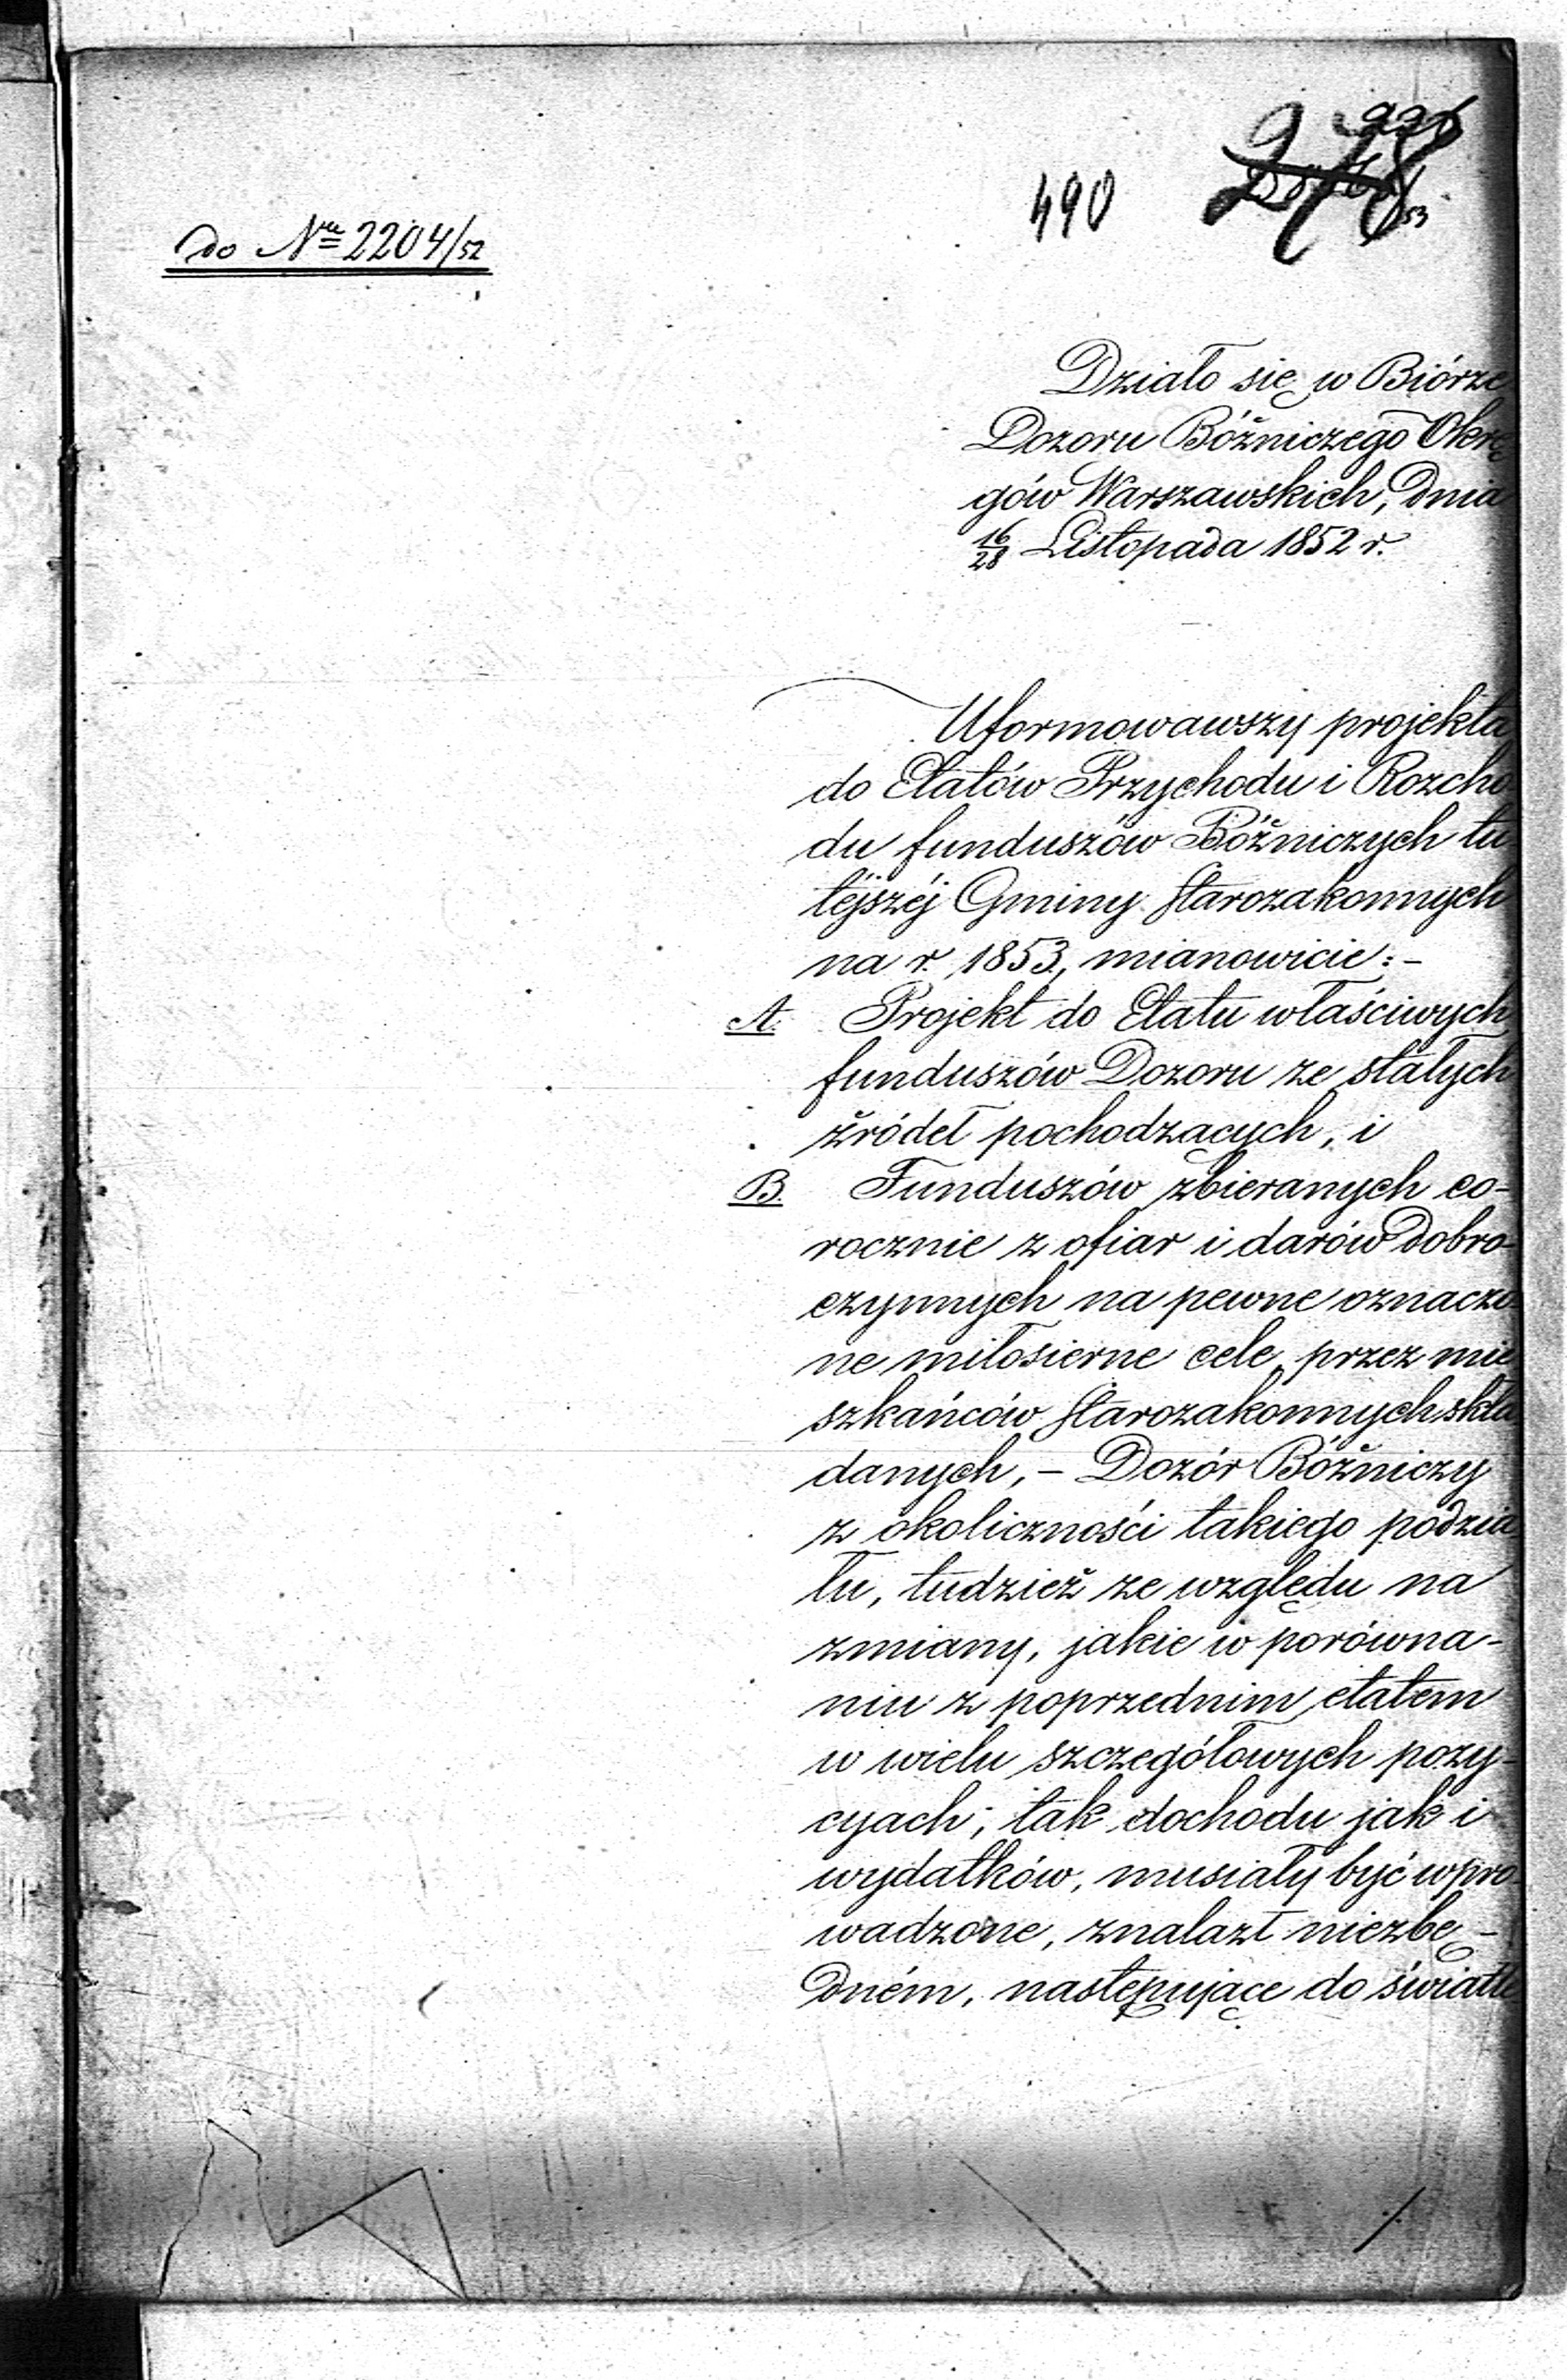 490
do Nru 2204/52
Działo się w Biórze
Dozoru Bóżniczego Okrę
gów Warszawskich, Dnia
16/28 Listopada 1852 r.
Uformowawszy projekta
do Etatów Przychodu i Rozcho
du funduszów Bóżniczych tu
tejszéj Gminy Starozakonnych
na r. 1853, mianowicie: -
A. Projekt do Etatu właściwych
funduszów Dozoru ze stałych
źródeł pochodzących, i
B. Funduszów zbieranych co-
rocznie z ofiar i darów dobro-
czynnych na pewne oznaczo
ne miłosierne cele, przez mie
szkańców Starozakonnych skła
danych, - Dozór Bóżniczy
z okoliczności takiego podzia
łu, tudzież ze względu na
zmiany, jakie w porówna-
niu z poprzednim etatem
w wielu szczegółowych pozy-
cyach, tak dochodu jak i
wydatków, musiały być wpro
wadzone, znalazł niezbę-
dném, następujące do światłe